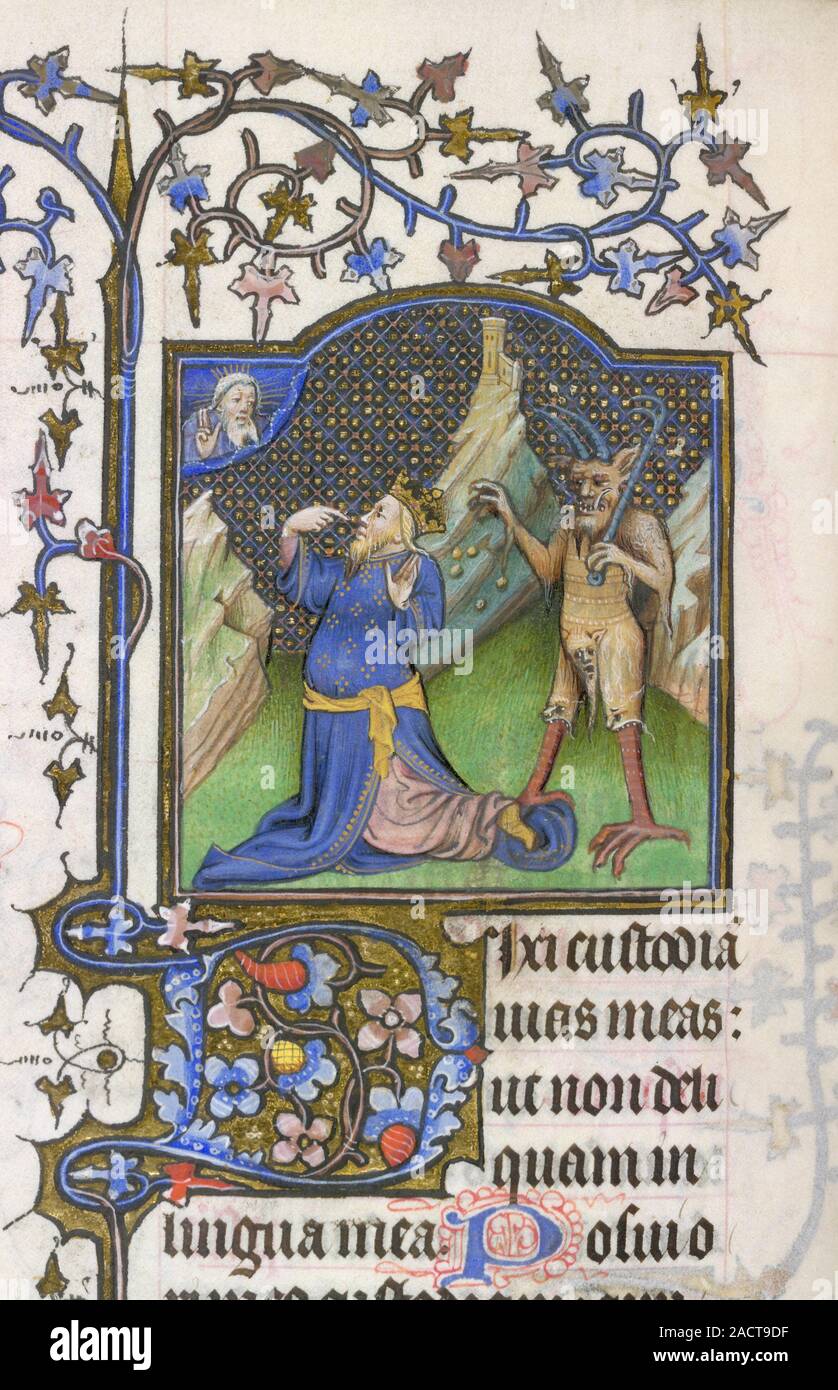 alamy
Dixi custodiā
uias meas:
ut non deli
quam in
lingua mea. Posui o
alamy
Image ID: 2ACT9DF
www.alamy.com